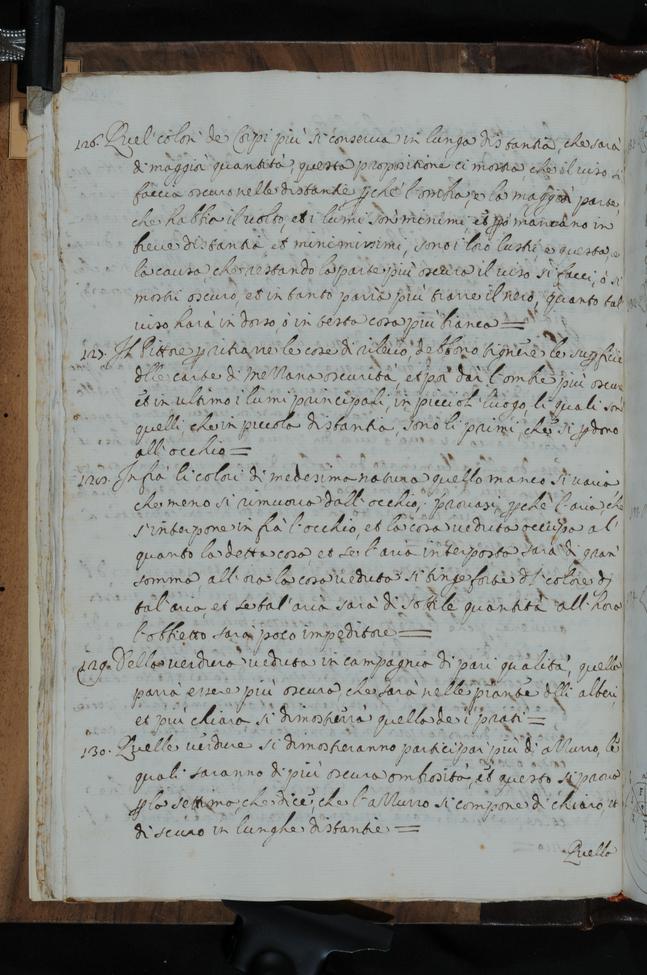 126. Quel' colori de Corpi più si conserva in lunga distantia, che sarà
di maggior quantità, questa propositione ci mostra che il viso si
faccia oscuro nelle distantie pche l'ombra, e la maggior parte,
che habbia il volto, et i lumi son minimi, et pò mancano in
breve distantia et minimissimi, sono i loro lustri, e questa, e
la causa, che restando la parte più oscura il viso si facci, ò si
mostri oscuro, et in tanto parrà più trarre il nero, quanto tal
viso harà in dorso, ò in testa cosa più bianca =
127. Il Pittore p ritrarre le cose di rilievo, debbono tignere le supficie
dlle carte di mezzana oscurità, et poi dar l'ombre più oscure
et in ultimo i lumi principali, in picciol' luogo, li quali son'
quelli, che in piccola distantia, sono li primi, che si pdono
all'occhio =
128. Infrà li colori di medesima natura quello manco si varia
che meno si rimuova dall'occhio, provasi, pche l'aria che
s'interpone in frà l'occhio, et la cosa veduta occupa al'
quanto la detta cosa, et se l'aria interposta sarà di gran'
somma, all'ora la cosa veduta si tinge forte dl' colore di
tal'aria, et se tal'aria sarà di sottile quantità all'hora
l'obbietto sarà poco impeditore =
129. Della verdura veduta in campagnia di pari qualità, quella
parrà essere più oscura, che sarà nelle piante dlli alberi,
et più chiara si dimosterrà quella de i prati =
130. Quelle verdure si dimosteranno participar più di azzurro, le
quali saranno di più oscura ombrosità, et questo si prova
p la settima, che dice, che l'azzurro si compone di chiaro, et
di scuro in lunghe distantie =
Quello